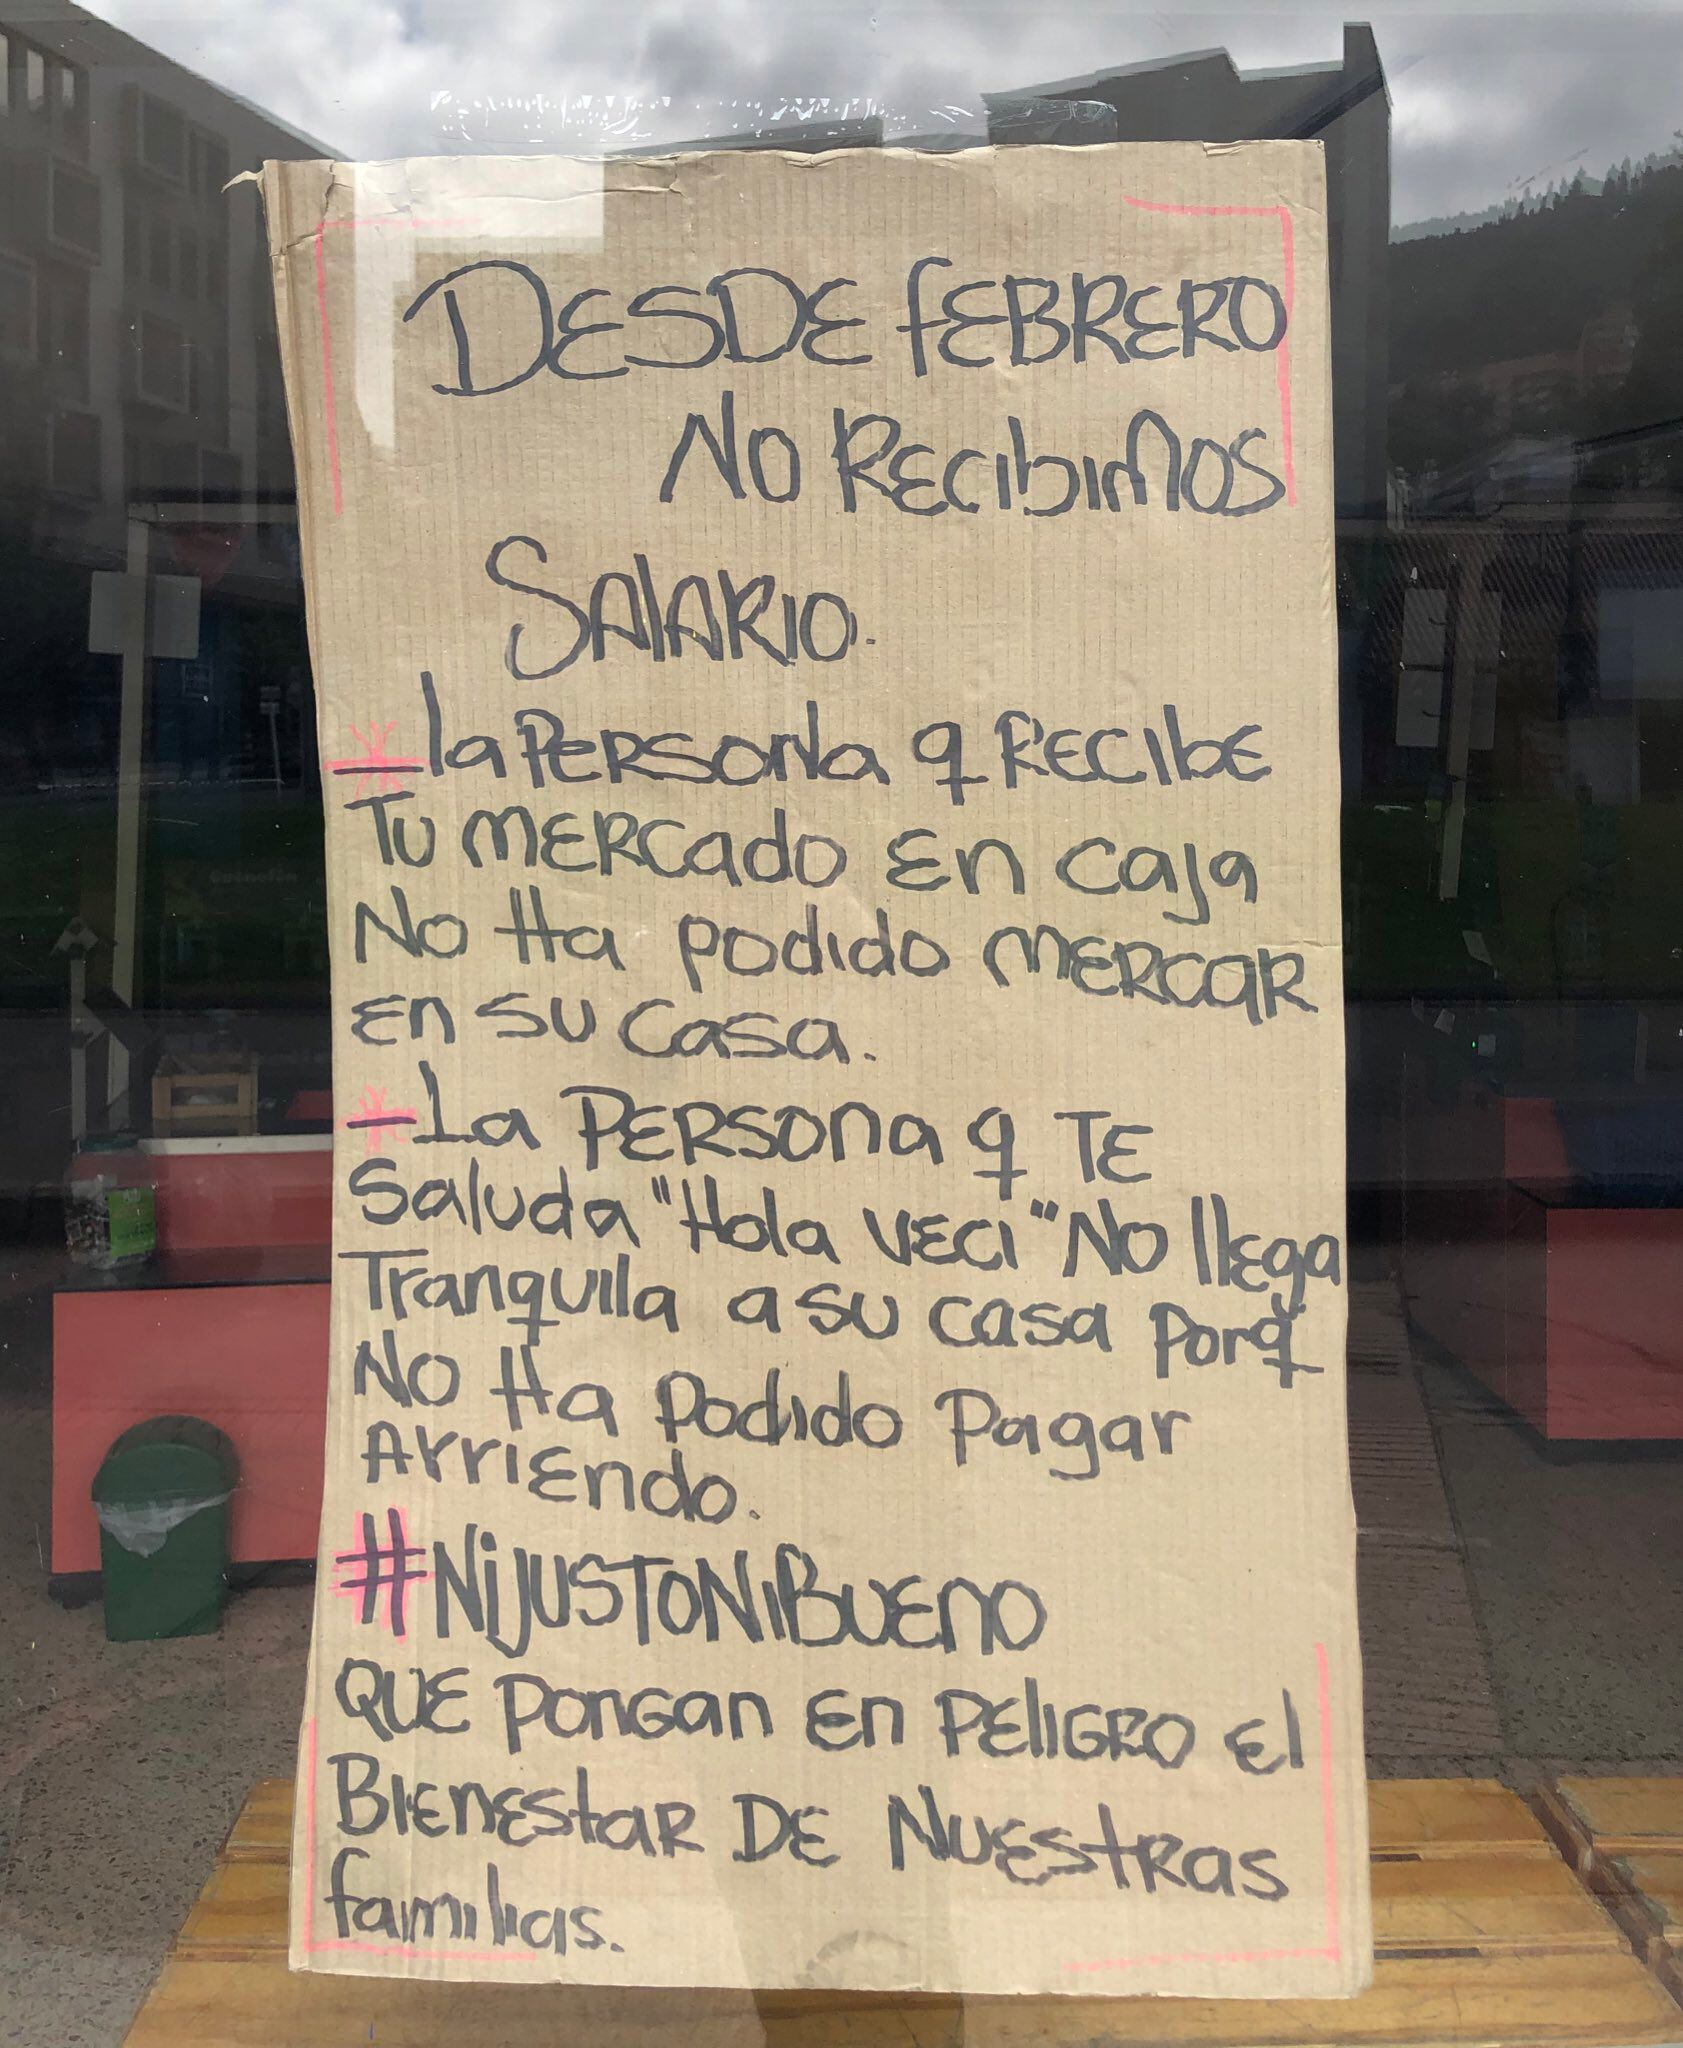 DESDE fEBRERO
NO RECibiMOS
SALARIO.
* la PERSONa q RECIbE
TU MERCado En caja
No Ha podido MERCAR
En su casa.
* La PERSOna q TE
Saluda "Hola VECI" No llEga
Tranquila a su casa Porq'
No Ha Podido Pagar
ArriEndo.
#NiJUSTONiBuEno
QUE PonGan En PEliGRO El
BIEnEStaR DE NuEstRas
familias.